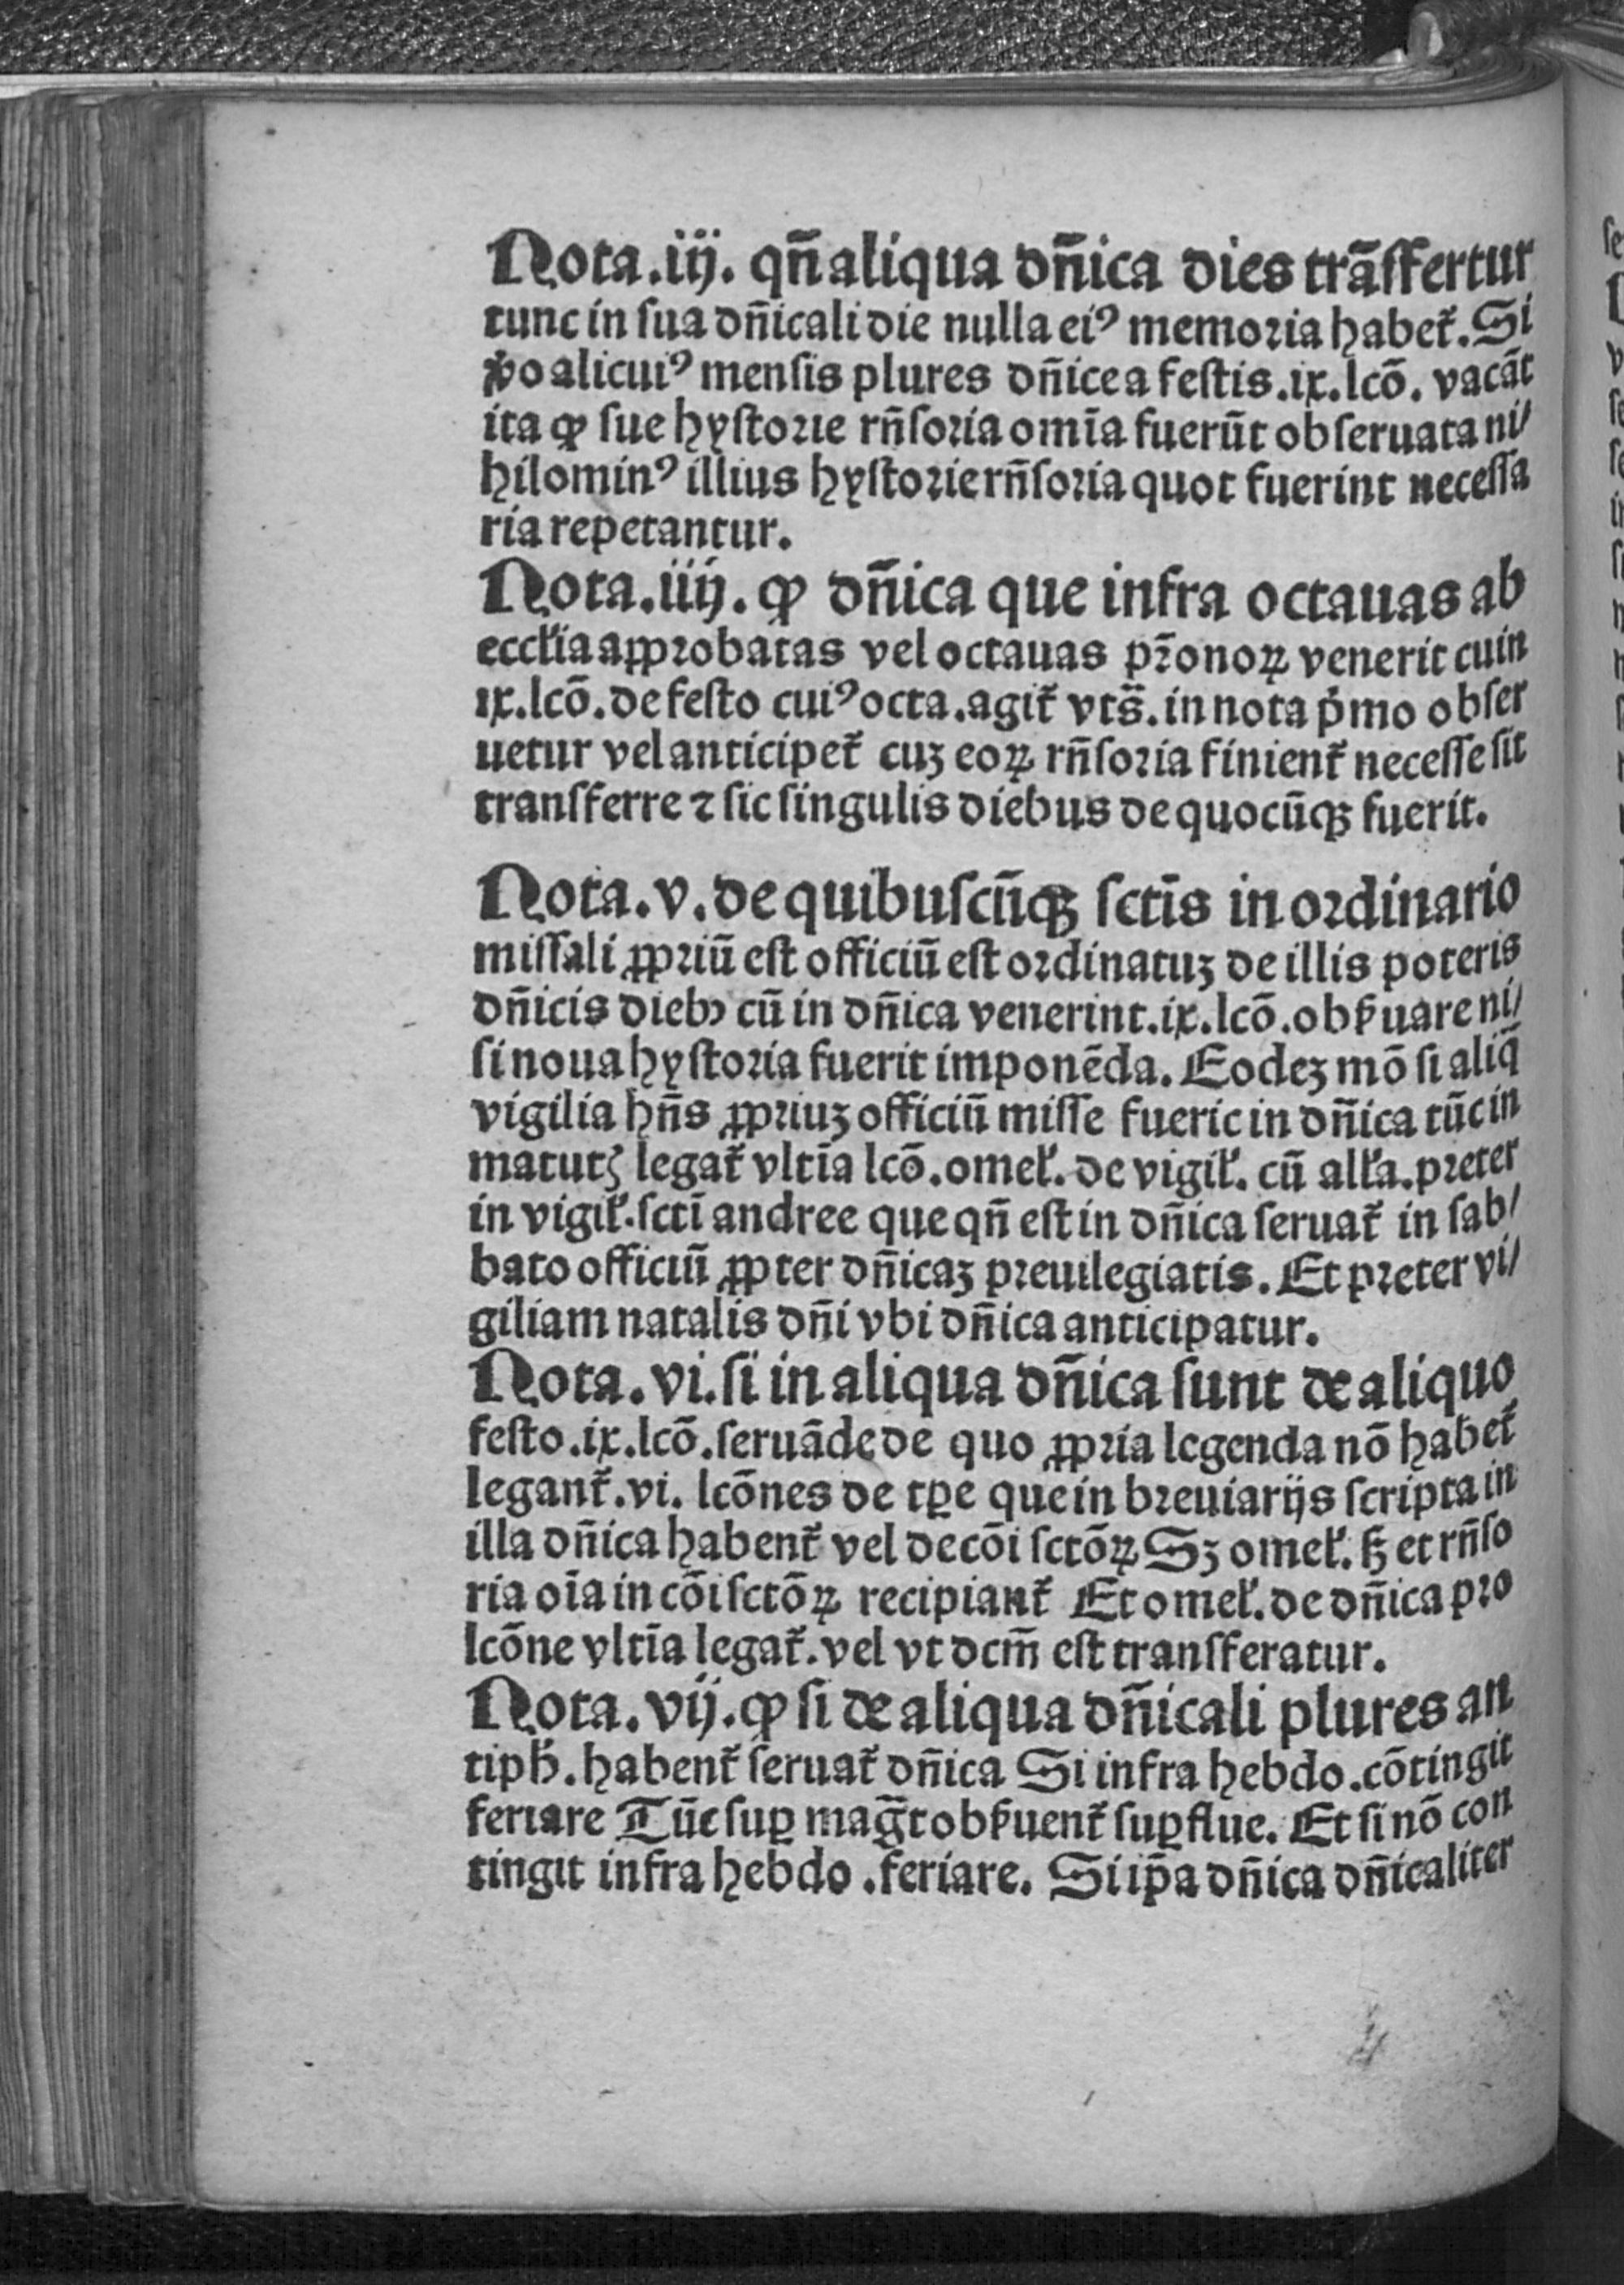 Nota.iij. qn̄ aliqua dn̄ica dies trāſfertur
tunc in ſua dn̄icali die nulla eiꝰ memoꝛia habet᷑. Si
ꝟo alicuiꝰ menſis plures dn̄ice a feſtis.ix.lcō. vacāt
ita ꝙ ſue hyſtoꝛie rn̄ſoꝛia omīa fuerūt obſeruata ni/
hilominꝰ illius hyſtoꝛie rn̄ſoꝛia quot fuerint neceſſa
ria repetantur.
Nota.iiij. ꝙ dn̄ica que infra octauas ab
eccľia aꝓpꝛobatas vel octauas pr̄onoꝝ venerit cum
ix.lcō. de feſto cuiꝰ octa.agit᷑ vts̄. in nota pͥmo obſer
uetur vel anticipet᷑ cuꝫ eoꝝ rn̄ſoꝛia finient᷑ neceſſe ſit
tranſferre ⁊ ſic ſingulis diebus de quocūqꝫ fuerit.
Nota.v. de quibuſcūqꝫ ſctīs in oꝛdinario
miſſali ꝓpꝛiū eſt officiū eſt oꝛdinatuꝫ de illis poteris
dn̄icis diebꝰ cū in dn̄ica venerint.ix.lcō.obẜuare ni/
ſi noua hyſtoꝛia fuerit imponēda. Eodeꝫ mō ſi aliq̄
vigilia hn̄s ꝓpꝛiuꝫ officiū miſſe fueric in dn̄ica tūc in
matutꝭ legat᷑ vltīa lcō.omeľ. de vigiľ. cū alľa.pꝛeter
in vigiľ.ſctī andree que qn̄ eſt in dn̄ica ſeruat᷑ in ſab/
bato officiū ꝓpter dn̄icaꝫ pꝛeuilegiatis. Et pꝛeter vi/
giliam natalis dn̄i vbi dn̄ica anticipatur.
Nota.vi. ſi in aliqua dn̄ica ſunt de aliquo
feſto.ix.lcō.ſeruāde de quo ꝓpꝛia legenda nō habet᷑
legant᷑.vi. lcōnes de tꝑe que in bꝛeuiarijs ſcripta in
illa dn̄ica habent᷑ vel de cōi ſctōꝝ Sꝫ omeľ. ẞ et rn̄ſo
ria oīa in cōi ſctōꝝ recipiant᷑ Et omeľ. de dn̄ica pꝛo
lcōne vltīa legat᷑. vel vt dcm̄ eſt tranſferatur.
Nota.vij. ꝙ ſi de aliqua dn̄icali plures an
tipħ. habent᷑ ſeruat᷑ dn̄ica Si infra hebdo.cōtingit
feriare Tūc ſuꝑ mag̅t obẜuent᷑ ſuꝑflue. Et ſi nō con
tingit infra hebdo.feriare. Si ip̄a dn̄ica dn̄icaliter